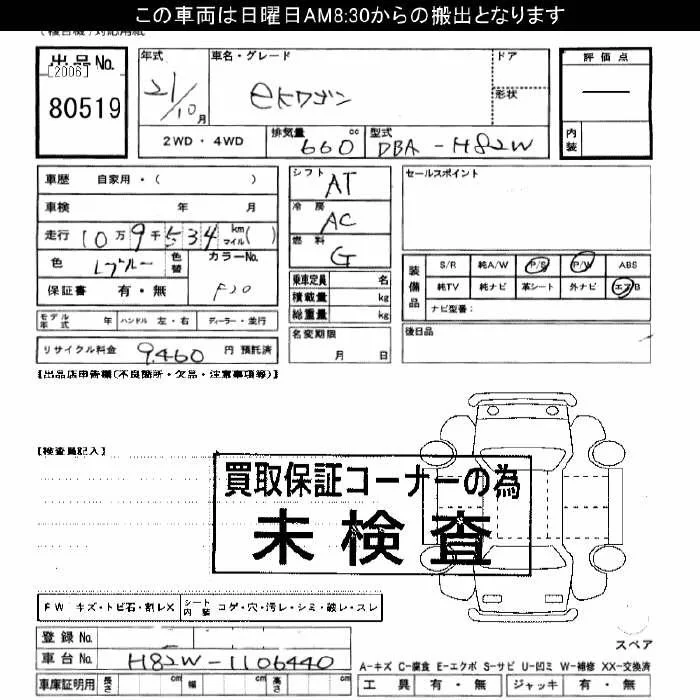 この車両は日曜日AM8:30からの搬出となります
出品No.
[2006]
80519
年式
21/10月
車名・グレード
eKワゴン
ドア
形状
評価点
内装
2WD・4WD
排気量 660 cc
型式 DBA-H82W
車歴 自家用・( )
車検 年 月
走行 10万9千534 km マイル( )
色 Lブルー 色替
カラーNo.
F20
保証書 有・無
シフト AT
冷房 AC
燃料 G
乗車定員 名
積載量 kg
総重量 kg
セールスポイント
装備品
S/R 純A/W P/S P/W ABS
純TV 純ナビ 革シート 外ナビ エアB
ナビ型番:
モデル年式 年 ハンドル 左・右 ディーラー・並行
名変期限
月 日
後日品
リサイクル料金 9,460 円 預託済
【出品店申告欄(不良箇所・欠品・注意事項等)】
【検査員記入】
買取保証コーナーの為
未検査
FW キズ・トビ石・割レX
シート内装 コゲ・穴・汚レ・シミ・破レ・スレ
登録No.
スペア
車台No. H82W-1106440
A-キズ C-腐食 E-エクボ S-サビ U-凹ミ W-補修 XX-交換済
車庫証明用 長さ cm 幅 cm 高さ cm
工具 有・無 ジャッキ 有・無